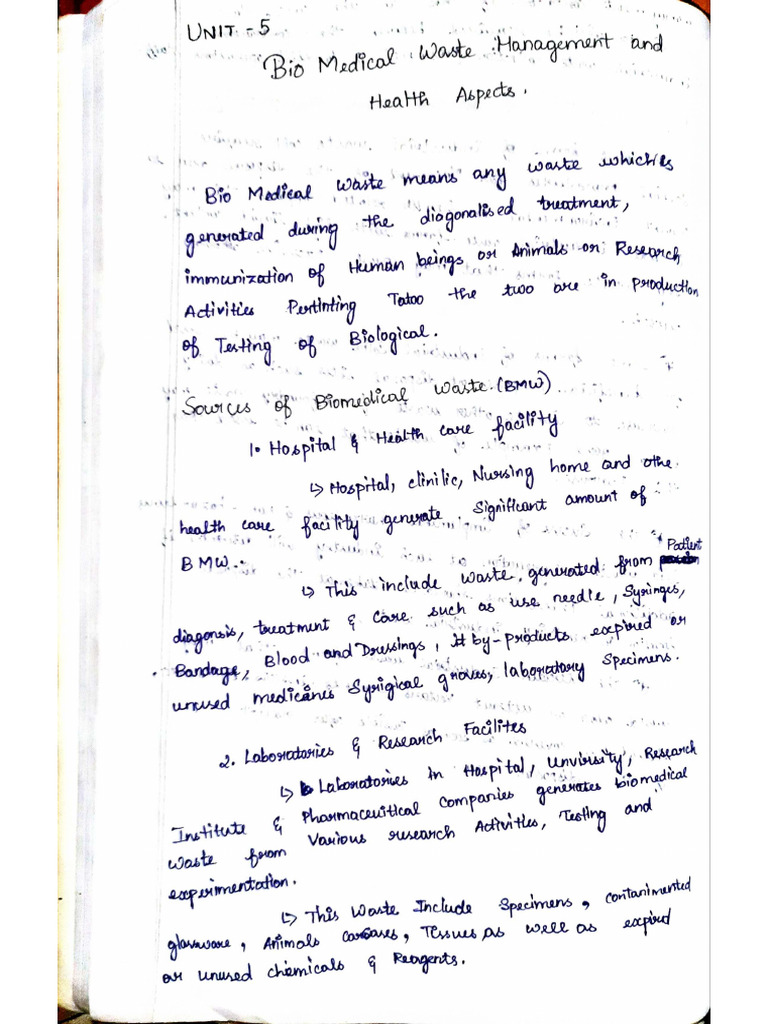 UNIT - 5
Bio Medical Waste Management and
Health Aspects.
Bio Medical Waste means any waste which is
generated during the diagonalised treatment,
immunization of Human beings or Animals or Research
Activities Pertinting Tatoo the two are in production
of Testing of Biological.
Sources of Biomedical Waste. (BMW)
1. Hospital & Health care facility
↳ Hospital, clinilic, Nursing home and othe
health care facility generate Significant amount of
BMW.
↳ This include waste generated from Patient
diagonsis, treatment & care such as use needle, Syringes,
Bandage, Blood and Dressings, by-products expired or
unused medicanes Syrigical groves, laboratory Specimens.
2. Laboratories & Research Facilites
↳ Laboratories in Hospital, unvirsity, Research
Institute & Pharmaceuitical companies generates biomedical
waste from Various research Activities, Testing and
experimentation.
↳ This Waste Include Specimens, contanimented
glassware, Animals Carcases, Tessues as well as expired
or unused chemicals & Reagents.